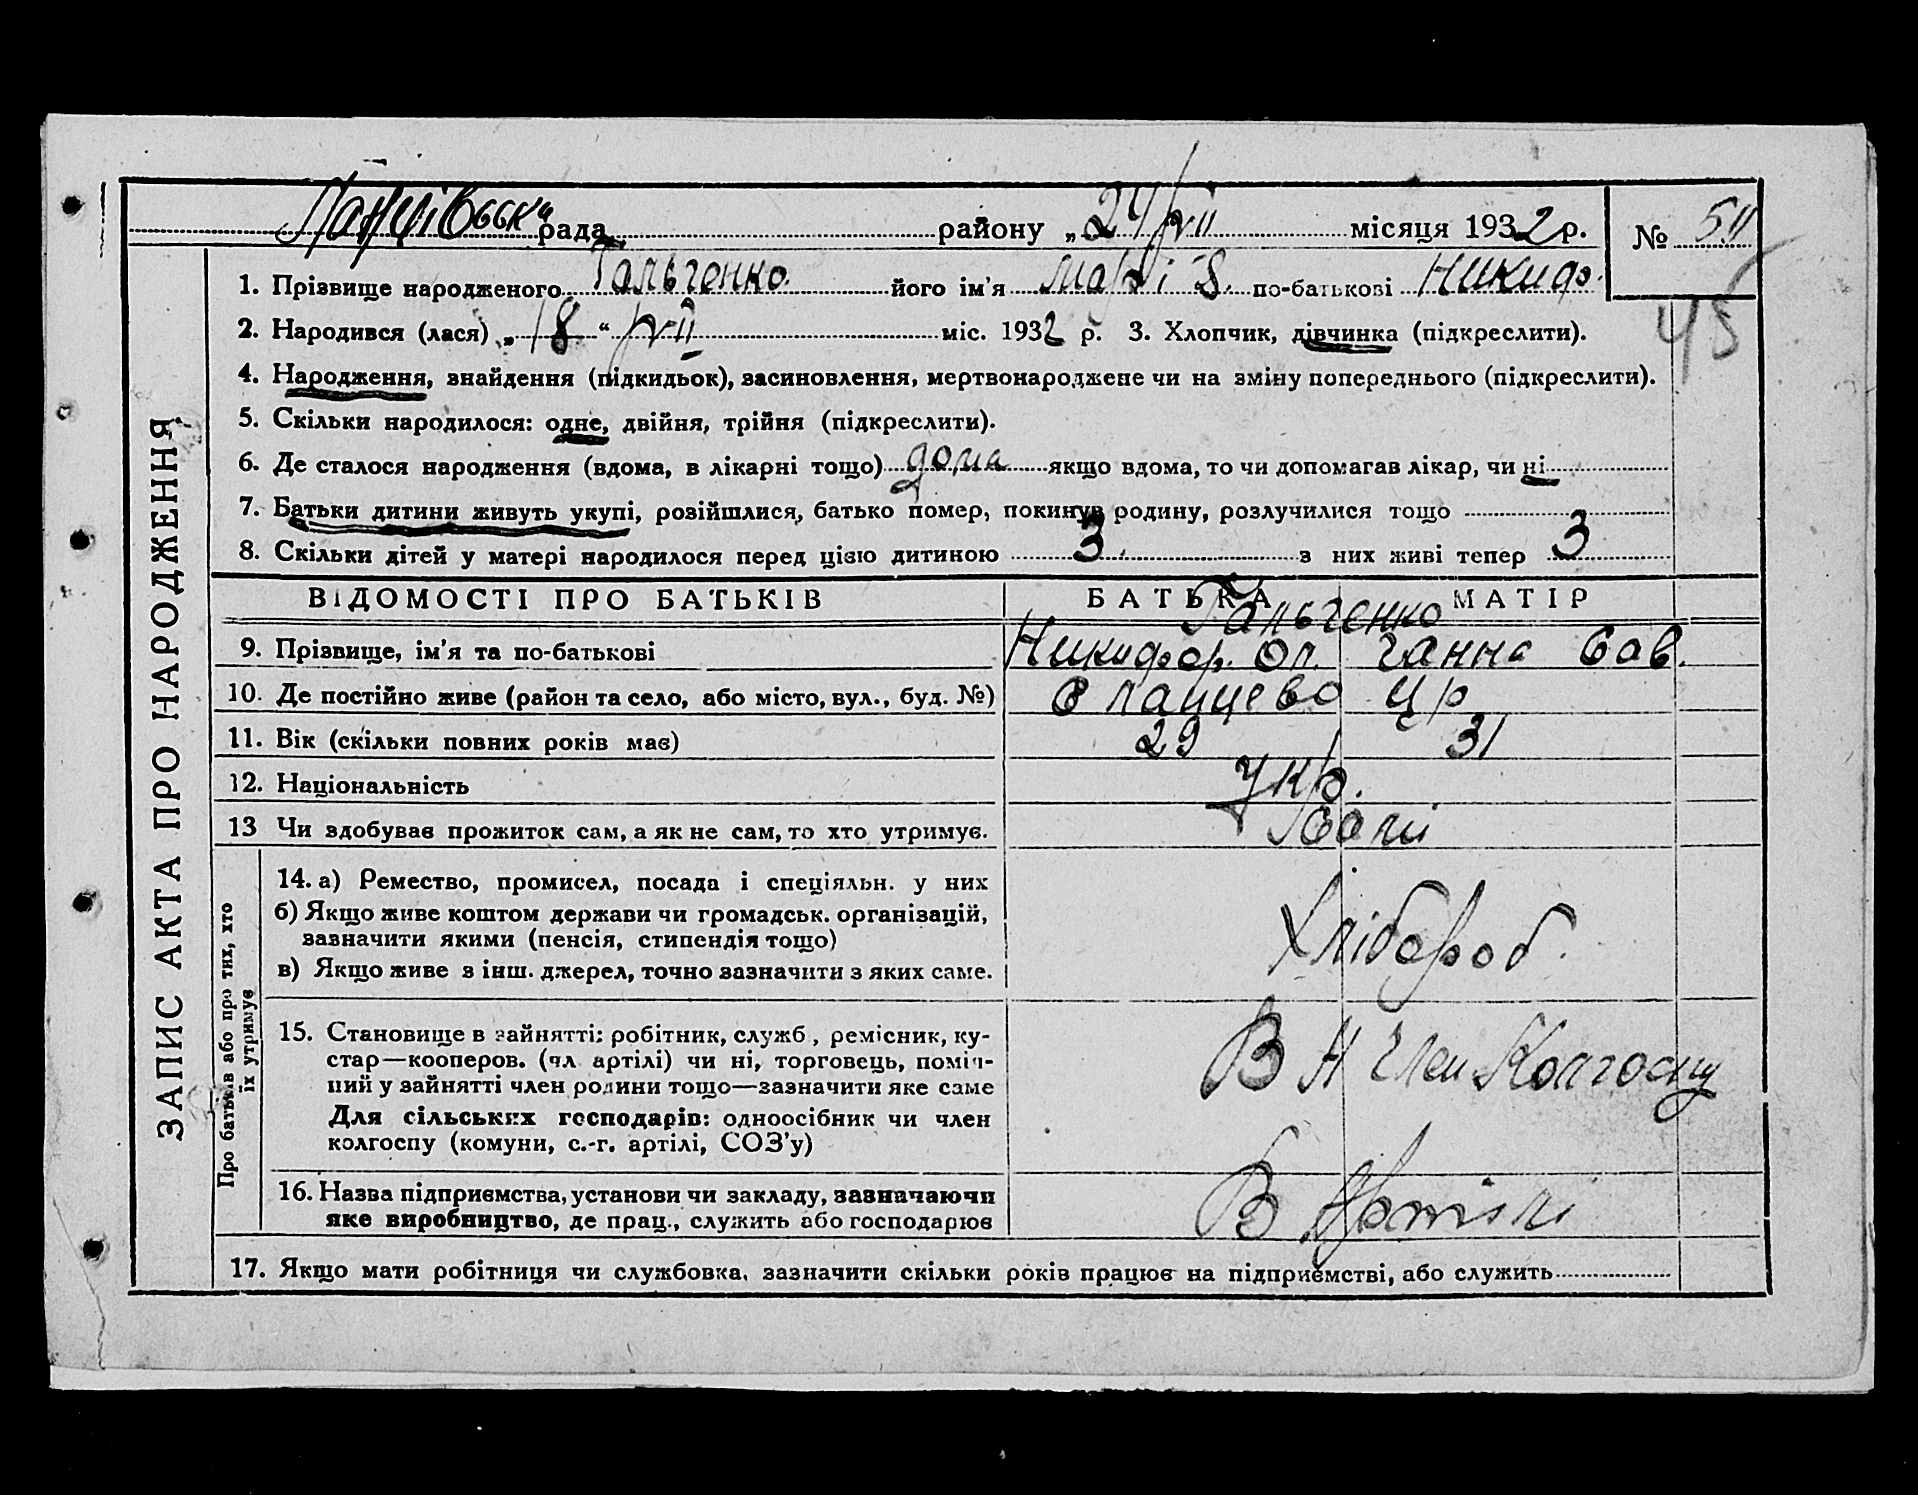 рада районо „ 24/VII місяця 1932 р. № 
1. Прізвище народженого Гальченко його ім'я Марія по-батькові Никиф.
2. Народився (лася) „ 18 “ VII міс. 1932 р. 3. Хлопчик, дівчинка (підкреслити).
4. Народження, знайдення (підкидьок), засиновлення, мертвонароджене чи на зміну попереднього (підкреслити).
5. Скільки народилося: одне, двійня, трійня (підкреслити).
6. Де сталося народження (вдома, в лікарні тощо) дома якщо вдома, то чи допомагав лікар, чи ні
7. Батьки дитини живуть укупі, розійшлися, батько помер, покинув родину, розлучилися тощо
8. Скільки дітей у матері народилося перед цією дитиною 3 з них живі тепер 3
45
ЗАПИС АКТА ПРО НАРОДЖЕННЯ
ВІДОМОСТІ ПРО БАТЬКІВ БАТЬКА МАТІР
Гальченко
9. Прізвище, ім'я та по-батькові Никифор. Ол. Ганна Сав.
10. Де постійно живе (район та село, або місто, вул., буд. №)
11. Вік (скільки повних років має) 29 31
12. Національність Укр.
13 Чи здобував прожиток сам, а як не сам, то хто утримує.
Про батьків або про тих, хто
їх утримує
14. а) Ремество, промисел, посада і спеціяльн. у них
б) Якщо живе коштом держави чи громадськ. організацій,
зазначити якими (пенсія, стипендія тощо)
в) Якщо живе з інш. джерел, точно зазначити з яких саме.
Хлібороб
15. Становище в зайнятті: робітник, служб, ремісник, ку-
стар—кооперов. (чл артілі) чи ні, торговець, поміч-
ний у зайнятті член родини тощо—зазначити яке саме
Для сільських господарів: одноосібник чи член
колгоспу (комуни, с.-г. артілі, СОЗ'у)
Член Колгоспу
16. Назва підприємства, установи чи закладу, зазначаючи
яке виробництво, де прац., служить або господарює
В Артілі
17. Якщо мати робітниця чи службовка, зазначити скільки років працює на підприємстві, або служить